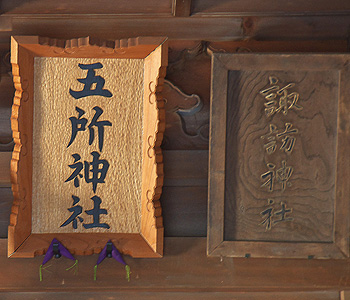 五所神社
諏訪神社